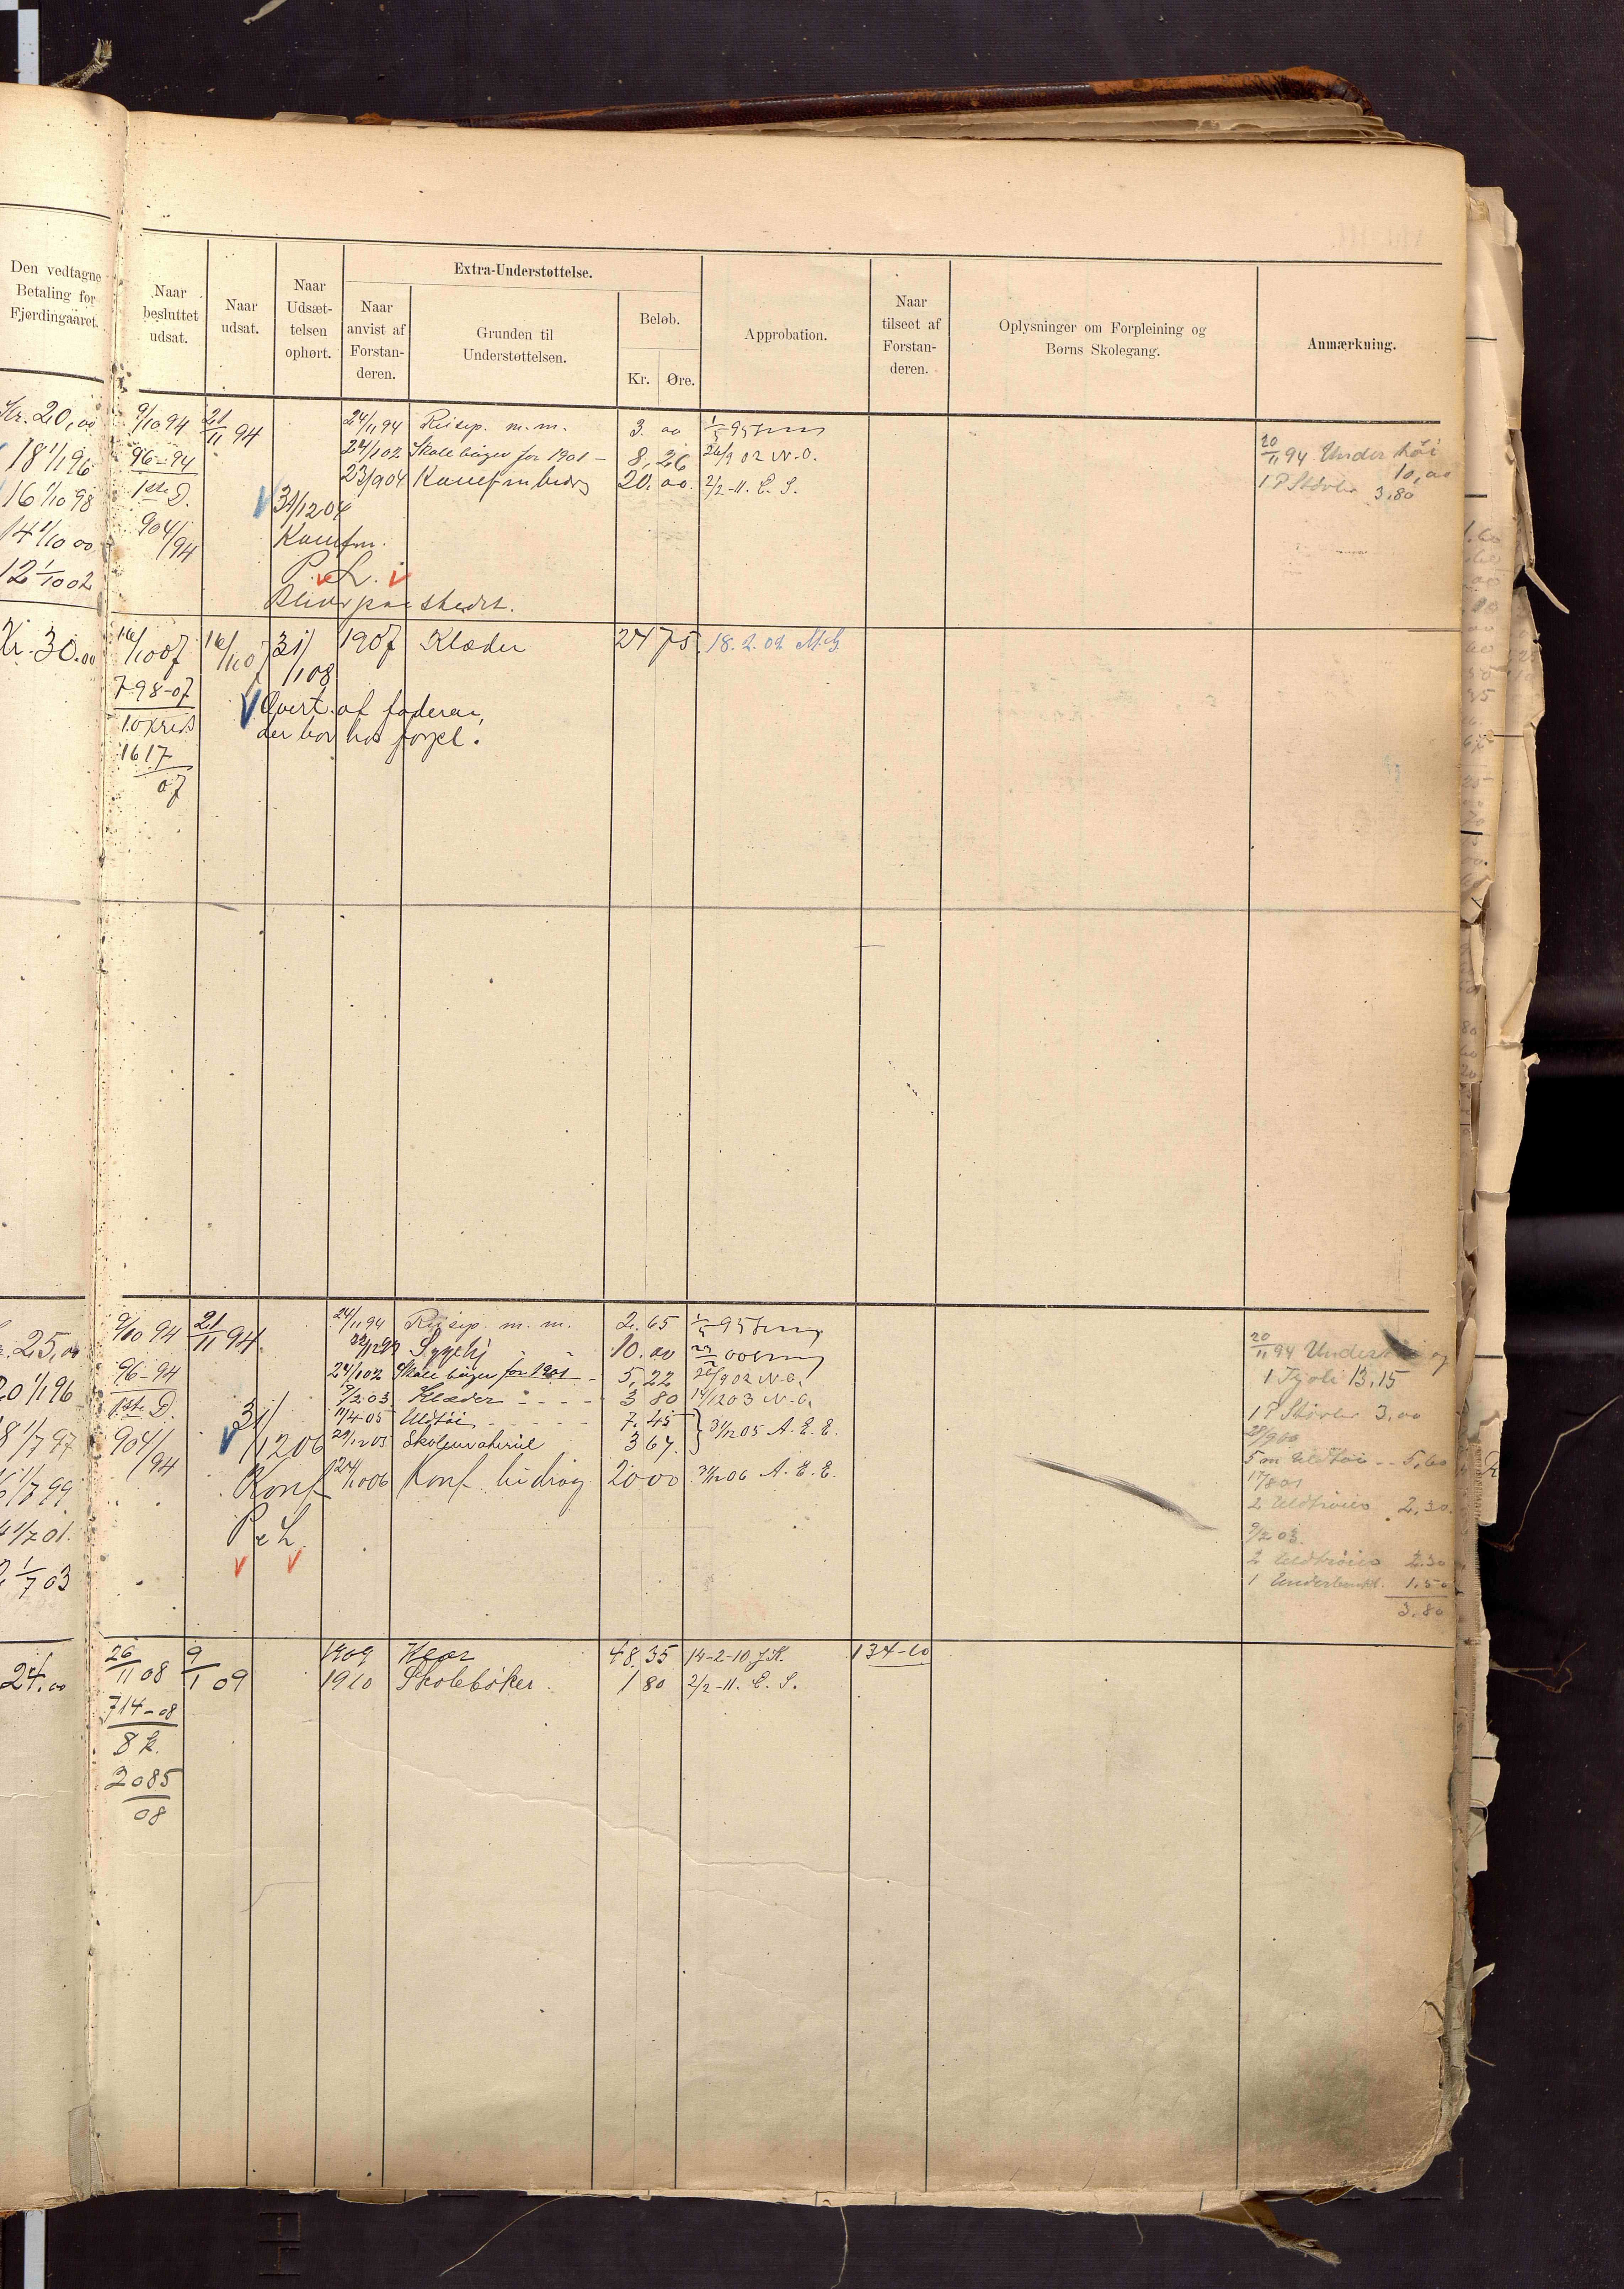 Den vedtagne
Betaling for
Fjerdingaaret.
Naar
besluttet
udsat.
Naar
udsat.
Naar
Udsæt-
telsen
ophørt.
Extra-Understøttelse.
Naar
anvist af
Forstan-
deren.
Grunden til
Understøttelsen.
Beløb.
Kr. Øre.
Approbation.
Naar
tilseet af
Forstan-
deren.
Oplysninger om Forpleining og
Børns Skolegang.
Anmærkning.
Kr. 20,00 9/10 94 21/11 94 24/11 94 Reisep. m. m. 3. 00 1/5 95
18 1/1 96 96-94 24/1 02 Skolebøger for 1901 - 8,26 26/9 02 N.O.
16 1/10 98 1ste D. 23/9 04 Konfm bidrag 20.00. 2/2-11. E. S.
14 1/10 00 904/94 31/12 04
Konfm.
12 1/10 02 P. e L.
Bliver paa stedet.
20/11 94 Undertøi
10,00
1 P Støvler 3,80
Kr. 30.00 16/10 07 16/10 31/1 08 1907 Klæder 24 75 18.2.09 M.G.
798-07
10 kreds
1617/07
Overt. af faderen,
der bor hos forpl.
25,00 9/10 94 21/11 94 24/11 94 Reisep. m. m. 2.65 1/5 95
Sygehj 10.00
20 1/1 96 96-94 24/1 02 Skolebøger for 1901 - 5,22 26/9 02 N.O.
1ste D. 9/2 03 Klæder - - - 3 80 14/12 03 N.O.
8 1/7 97 904/94 31/12 06 11/4 05 Uldtøi - - - - 7.45 } 31/12 05 A. E. E.
Skolemateriel 3 67.
6 1/7 99 Konf 24/10 06 Konf. bidrag 20 00 31/12 06 A. E. E.
4 1/7 01. P e L.
1/7 03
20/11 94 Undertøi og
1 Kjole 13,15
1 P Støvler 3,00
28/9 00
5 m Uldtøi - - 5,60
17/8 01
2 Uldtrøier 2,30.
9/2 03.
2 Uldtrøier 2.30
1 1,50
3,80
24,00 26/11 08 9/1 09 1909 Klær 48.35 14-2-10 J.K. 134-10
1910 Skolebøker. 1 80 2/2-11. E. S.
714-08
8 k.
2085/08